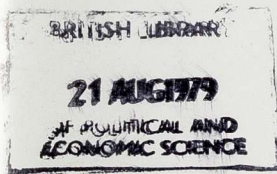 BRITISH LIBRARY
21 AUG1979
OF POLITICAL AND
ECONOMIC SCIENCE